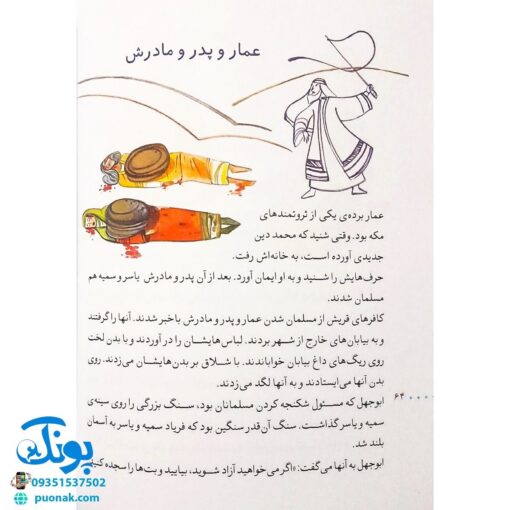 عمار و پدر و مادرش
عمار برده‌ی یکی از ثروتمندهای
مکه بود. وقتی شنید که محمد دین
جدیدی آورده است، به خانه‌اش رفت.
حرف‌هایش را شنید و به او ایمان آورد. بعد از آن پدر و مادرش یاسر و سمیه هم
مسلمان شدند.
کافرهای قریش از مسلمان شدن عمار و پدر و مادرش باخبر شدند. آنها را گرفتند
و به بیابان‌های خارج از شهر بردند. لباس‌هایشان را در آوردند و با بدن لخت
روی ریگ‌های داغ بیابان خواباندند. با شلاق بر بدن‌هایشان می‌زدند. روی
بدن آنها می‌ایستادند و به آنها لگد می‌زدند.
۶۴
ابوجهل که مسئول شکنجه کردن مسلمانان بود، سنگ بزرگی را روی سینه‌ی
سمیه و یاسر گذاشت. سنگ آن قدر سنگین بود که فریاد سمیه و یاسر به آسمان
بلند شد.
ابوجهل به آنها می‌گفت: «اگر می‌خواهید آزاد شوید، بیایید و بت‌ها را سجده کنید
پونک
09351537502
puonak.com